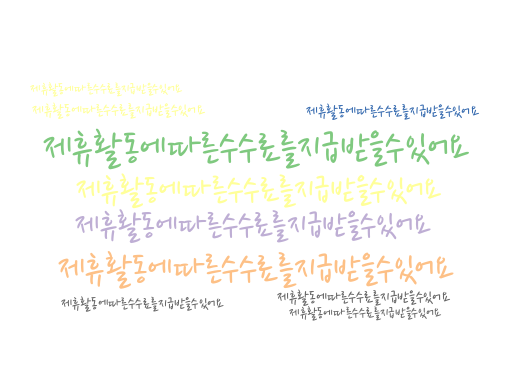 제휴활동에따른수수료를지급받을수있어요
제휴활동에따른수수료를지급받을수있어요
제휴활동에따른수수료를지급받을수있어요
제휴활동에따른수수료를지급받을수있어요
제휴활동에따른수수료를지급받을수있어요
제휴활동에따른수수료를지급받을수있어요
제휴활동에따른수수료를지급받을수있어요
제휴활동에따른수수료를지급받을수있어요
제휴활동에따른수수료를지급받을수있어요
제휴활동에따른수수료를지급받을수있어요